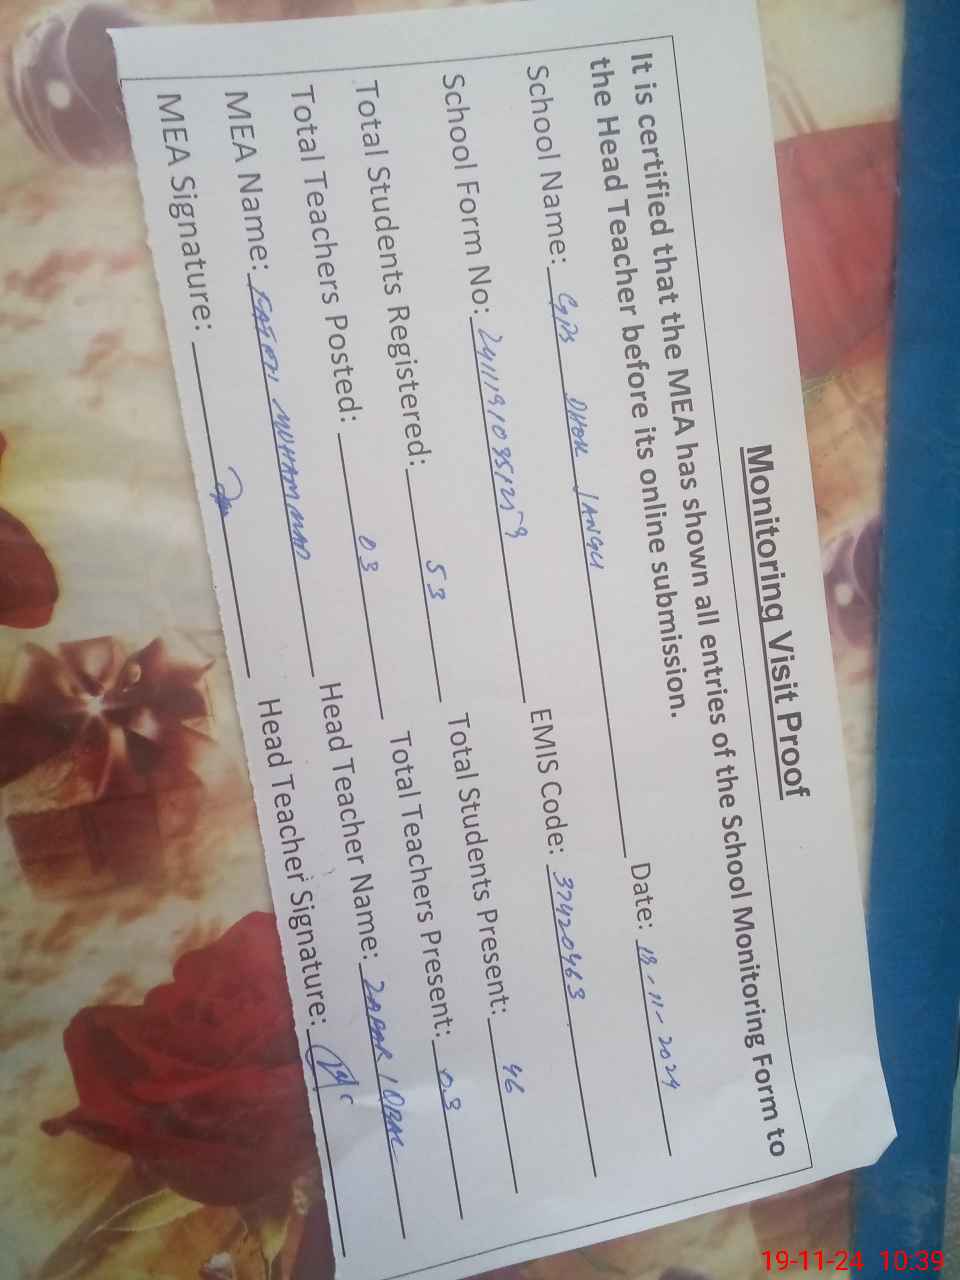 Monitoring Visit Proof
It is certified that the MEA has shown all entries of the School Monitoring Form to
the Head Teacher before its online submission.
School Name: GPS DHOK JANGU Date: 18-11-2024
School Form No: EMIS Code: 37420463
Total Students Registered: 53 Total Students Present: 46
Total Teachers Posted: 03 Total Teachers Present: 03
MEA Name: FATEH MUHAMMAD Head Teacher Name: ZAFAR IQBAL
MEA Signature: Head Teacher Signature:
19-11-24 10:39